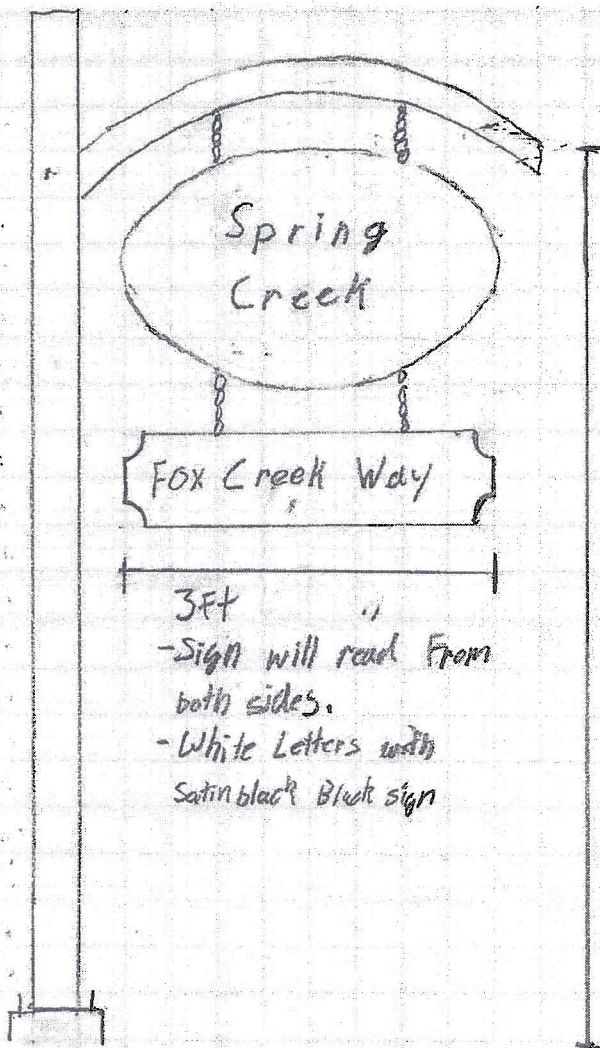 Spring
Creek
Fox Creek Way
3Ft
-Sign will read From
both sides.
-White Letters with
Satin black Black sign